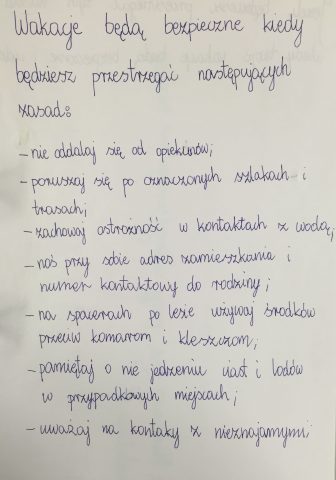 Wakacje będą bezpieczne kiedy
będziesz przestrzegać następujących
zasad:
- nie oddalaj się od opiekunów;
- poruszaj się po oznaczonych szlakach i
trasach;
- zachowaj ostrożność w kontaktach z wodą;
- noś przy sobie adres zamieszkania i
numer kontaktowy do rodziny;
- na spacerach po lesie używaj środków
przeciw komarom i kleszczom;
- pamiętaj o nie jedzeniu ciast i lodów
w przypadkowych miejscach;
- uważaj na kontaky z nieznajomymi